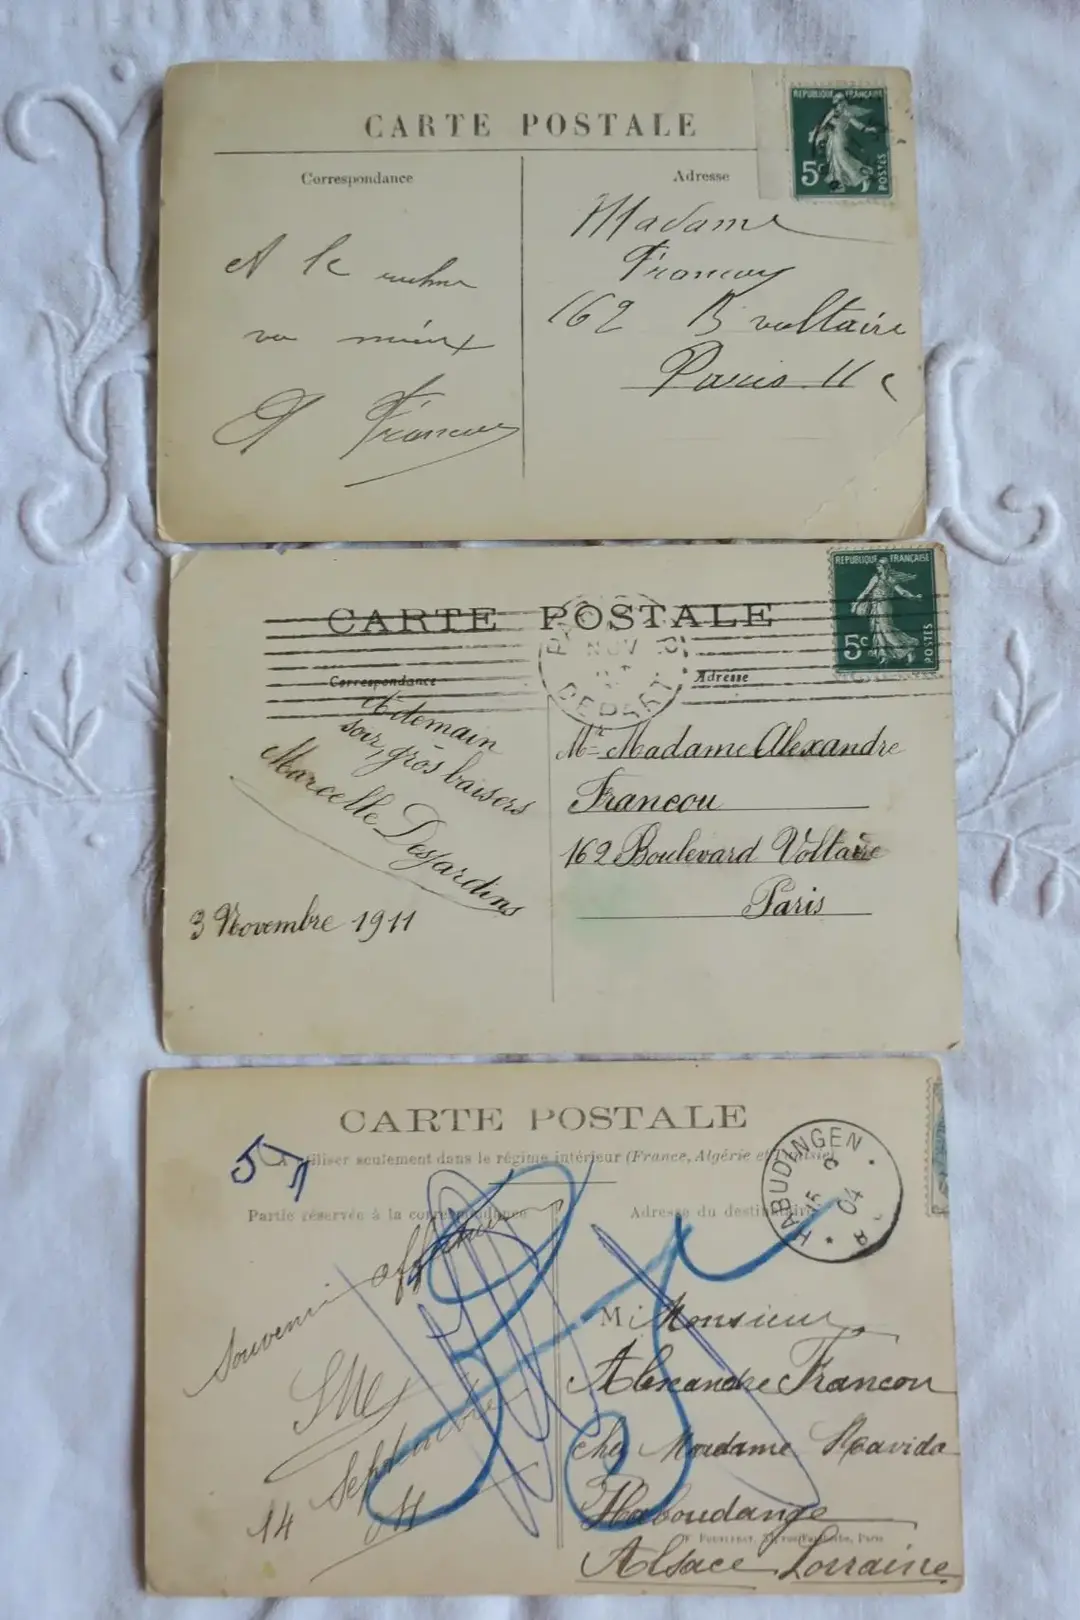 CARTE POSTALE
REPUBLIQUE FRANÇAISE
5c
POSTES
Correspondance
Adresse
Madame
Francou
162 B voltaire
Paris 11 e
A le
va mieux
A Francou
CARTE POSTALE
REPUBLIQUE FRANÇAISE
5c
POSTES
NOV
DEPART
Correspondance
Adresse
A demain
soir, gros baisers
Marcelle Desjardins
3 Novembre 1911
Madame Alexandre
Francou
162 Boulevard Voltaire
Paris
CARTE POSTALE
A utiliser seulement dans le régime intérieur (France, Algérie et Tunisie)
Partie réservée à la correspondance
Adresse du destinataire
HABUDINGEN
15 9
04
Souvenir affectueux
14 Septembre
M Monsieur
Alexandre Francou
chez Madame
Haboudange
Alsace Lorraine